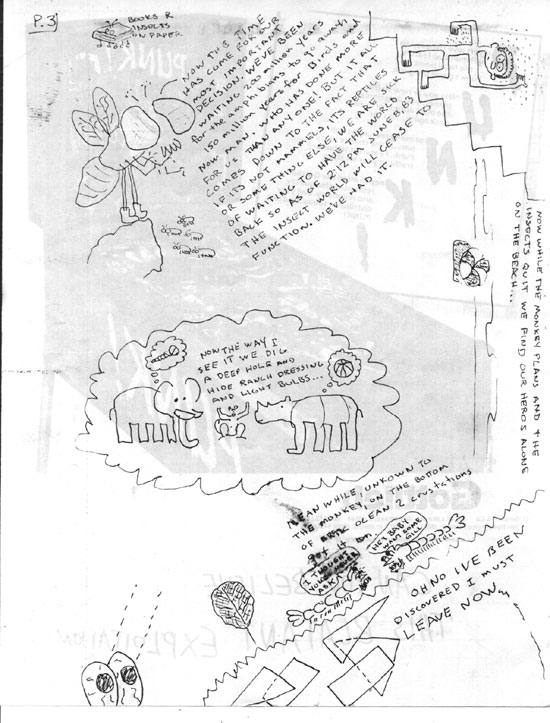 P. 3
BOOKS R
INSECTS
ON PAPER
NOW THIS TIME
HAS COME FOR OUR
MOST IMPORTANT
DECISION. WE'VE BEEN
WAITING 200 million years
for the amphibians to go away.
150 million years for Birds and
NOW MAN. WHO HAS DONE MORE
FOR US THAN ANY ONE. BUT IT ALL
COMES DOWN TO THE FACT THAT
IF ITS NOT MAMMELS, ITS REPTILES
OR SOMETHING ELSE, WE ARE SICK
OF WAITING TO HAVE THE WORLD
BACK SO AS OF 2:12 PM JUNE 8, 83
THE INSECT WORLD WILL CEASE TO
FUNCTION. WE'VE HAD IT.
NOW WHILE THE MONKEY PLANS AND THE
INSECTS QUIT WE FIND OUR HERO'S ALONE
ON THE BEACH...
NOW THE WAY I
SEE IT WE DIG
A DEEP HOLE AND
HIDE RANCH DRESSING
AND LIGHT BULBS...
MEAN WHILE, UNKOWN TO
THE MONKEY, ON THE BOTTOM
OF OCEAN 2 crustations
get it on.
HEY BABY
WANT SOME
GILL
I THOUGHT
YOU'D NEVER
ASK
OH NO I'VE BEEN
DISCOVERED I MUST
LEAVE NOW
PUNK
BELIEVE
BLATANT EXPLOITATION